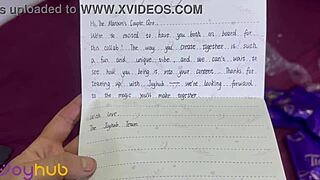 s uploaded to WWW.XVIDEOS.COM
Hi, The Maroom's Couple One,
We're so excited to have you both on board for
this collab! The way you create together is such
a fun and unique vibe and we can't wait to
see how you bring is into your content. Thanks for
teaming up with Joyhub — we're looking forward
to the magic you'll make together.
With love,
The Joyhub Team
Joyhub